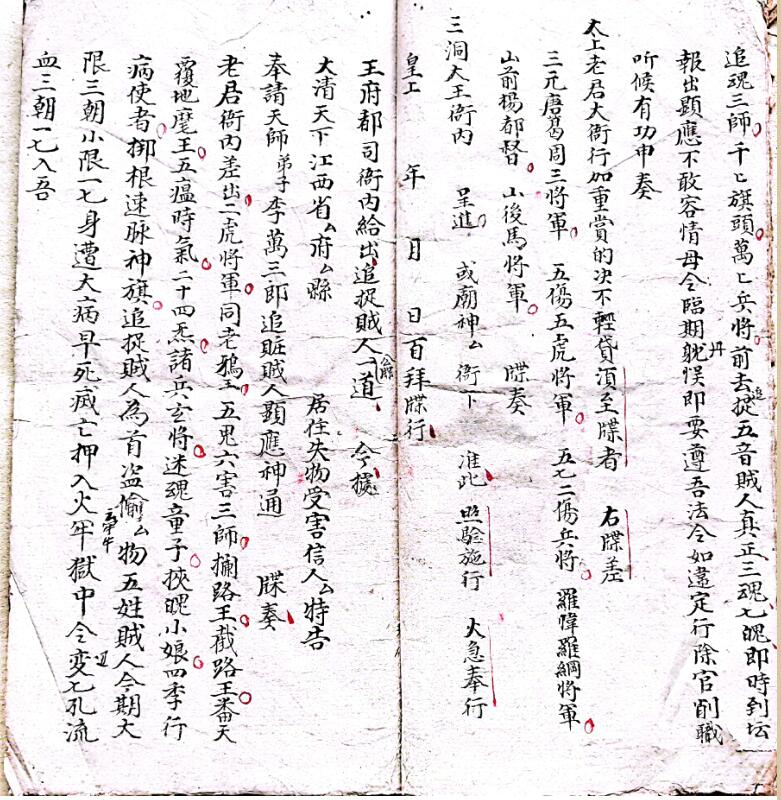 追魂三師千匕旗頭萬匕兵將前去捉五音賊人真正三魂七魄即時到坛
報出顯應不敢容情毋令臨期躭悞即要遵吾法令如違定行除官削職
听候有功申奏
太上老君大衙行如重賞的决不輕貸須至牒者 右牒差
三元唐葛周三將軍 五傷五虎將軍 五七二傷兵將 羅幃羅綱將軍
山前楊都督 山後馬將軍 牒奏
三洞大王衙内 呈進 或廟神厶衙下 准此 照驗施行 火急奉行
皇上 年 月 日百拜牒行
王府都司衙内給出追捉賊人一道 今據
大清天下江西省厶府厶縣 居住失物受害信人厶特告
奉請天師弟子李萬三郎追賍賊人顯應神通 牒奏
老君衙内差出二虎將軍同老鴉王五鬼六害三師攔路王截路王番天
覆地魔王五瘟時氣二十四炁諸兵玄將迷魂童子挾魄小娘四季行
病使者掷根速脉神旗追捉賊人為首盗偷厶物五姓賊人今期大
限三朝小限一七身遭大病早死滅亡押入火牢獄中令变七孔流
血三朝一七入吾